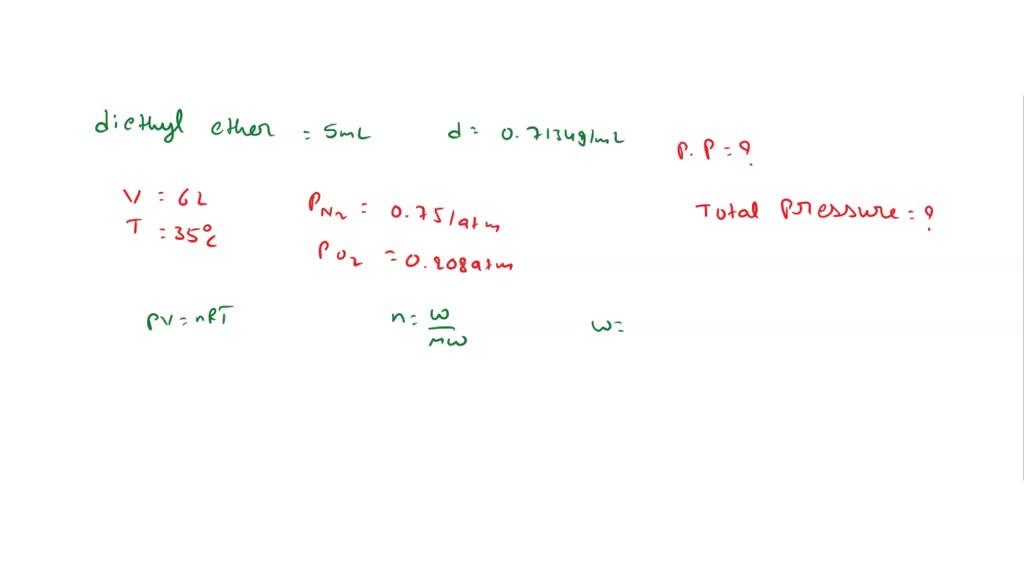 diethyl ether = 5mL d = 0.7134g/mL
P.P = ?
V = 6L
T = 35°C
PN2 = 0.751atm
PO2 = 0.208atm
Total Pressure = ?
PV = nRT
n = w/mw
w =